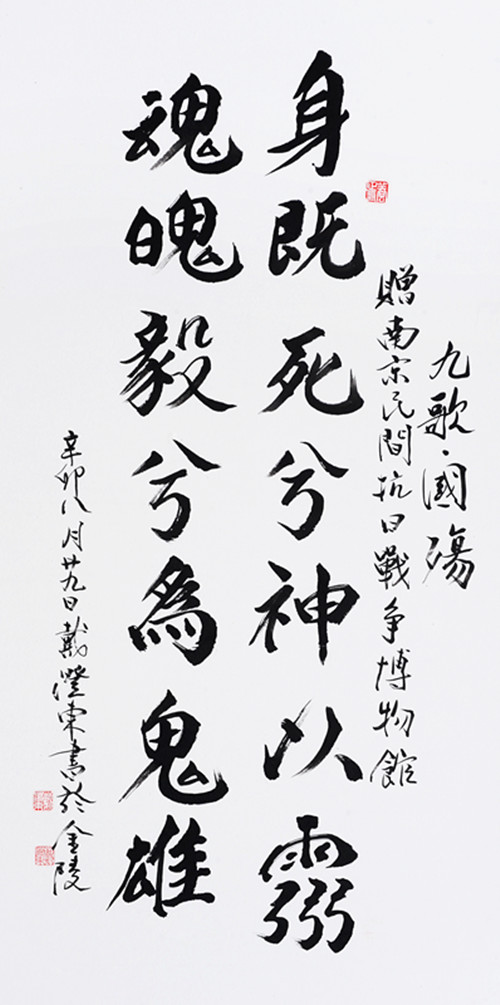 九歌·國殤
贈南京民間抗日戰争博物館
身既死兮神以靈
魂魄毅兮為鬼雄
辛卯八月廿九日戴澄東書於金陵